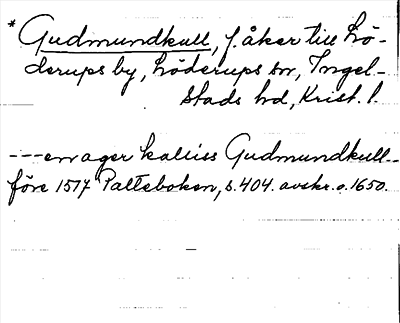 * Gudmundkull, f. åker till Lö-
derups by, Löderups sn, Ingel-
stads hd, Krist. l.
---en ager kalliss Gudmundkull--
före 1517 Palteboken, s. 404. avskr. o. 1650.